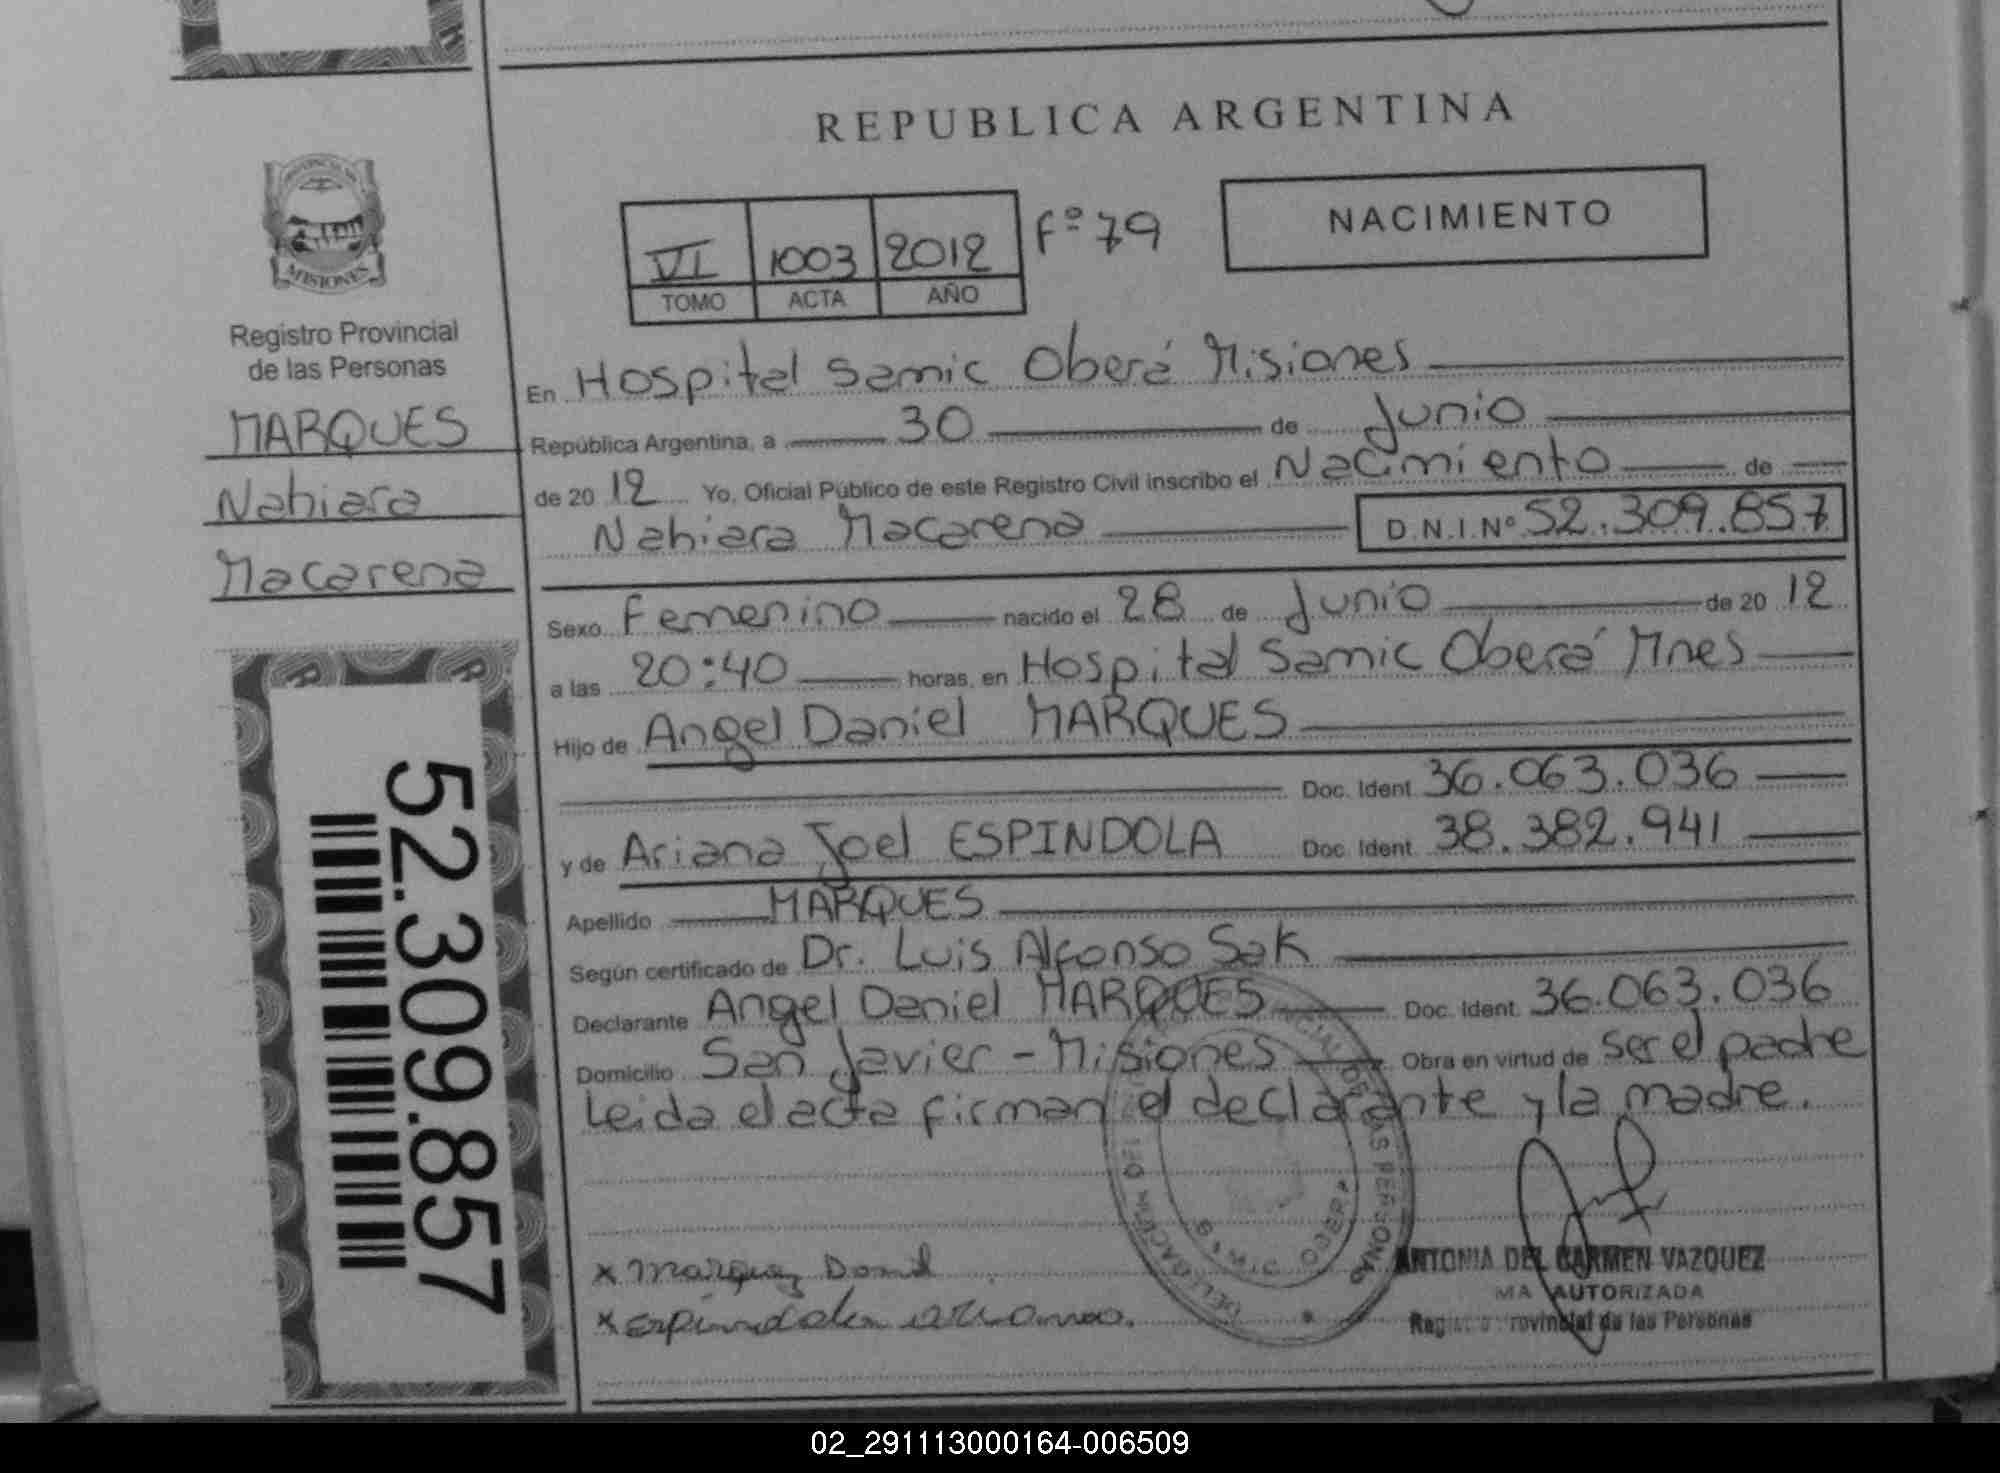 REPUBLICA ARGENTINA
NACIMIENTO
VI 1003 2012 Fº 79
TOMO ACTA AÑO
MISIONES
Registro Provincial
de las Personas
MARQUES
Nahiara
Macarena
En Hospital Samic Oberá Misiones
República Argentina, a 30 de Junio
de 20 12 Yo, Oficial Público de este Registro Civil inscribo el Nacimiento de
Nahiara Macarena D.N.I.Nº 52.309.857
Sexo Femenino nacido el 28 de Junio de 20 12
a las 20:40 horas, en Hospital Samic Oberá Mnes
Hijo de Angel Daniel MARQUES
Doc. Ident. 36.063.036
y de Ariana Joel ESPINDOLA Doc. Ident. 38.382.941
Apellido MARQUES
Según certificado de Dr. Luis Alfonso Sak
Declarante Angel Daniel MARQUES Doc. Ident. 36.063.036
Domicilio San Javier - Misiones Obra en virtud de ser el padre
Leida el acta firman el declarante y la madre.
52.309.857
x Marquez Daniel
x espindola ariana.
ANTONIA DEL CARMEN VAZQUEZ
AUTORIZADA
de las Personas
02_291113000164-006509